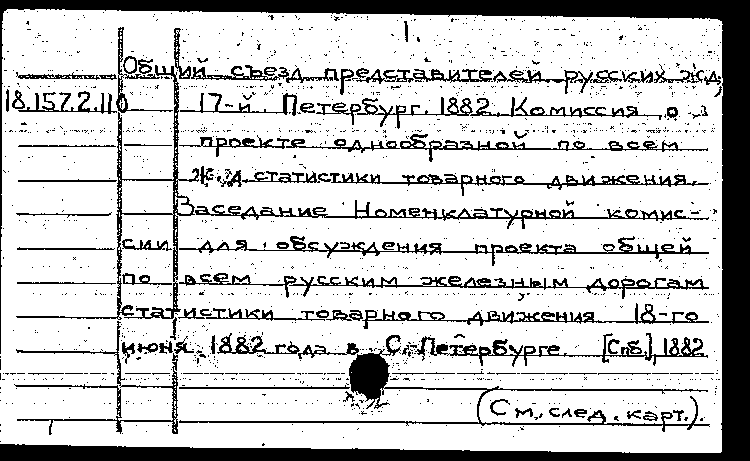 1.
Общий съезд представителей русских жд,
18.157.2.110 17-й. Петербург. 1882. Комиссия о
проекте однообразной по всем
ж.д. статистики товарного движения.
Заседание Номенклатурной комис-
сии для обсуждения проекта общей
по всем русским железным дорогам
статистики товарного движения 18-го
июня 1882 года в С. Петербурге. [Спб.], 1882
(См. след. карт.).